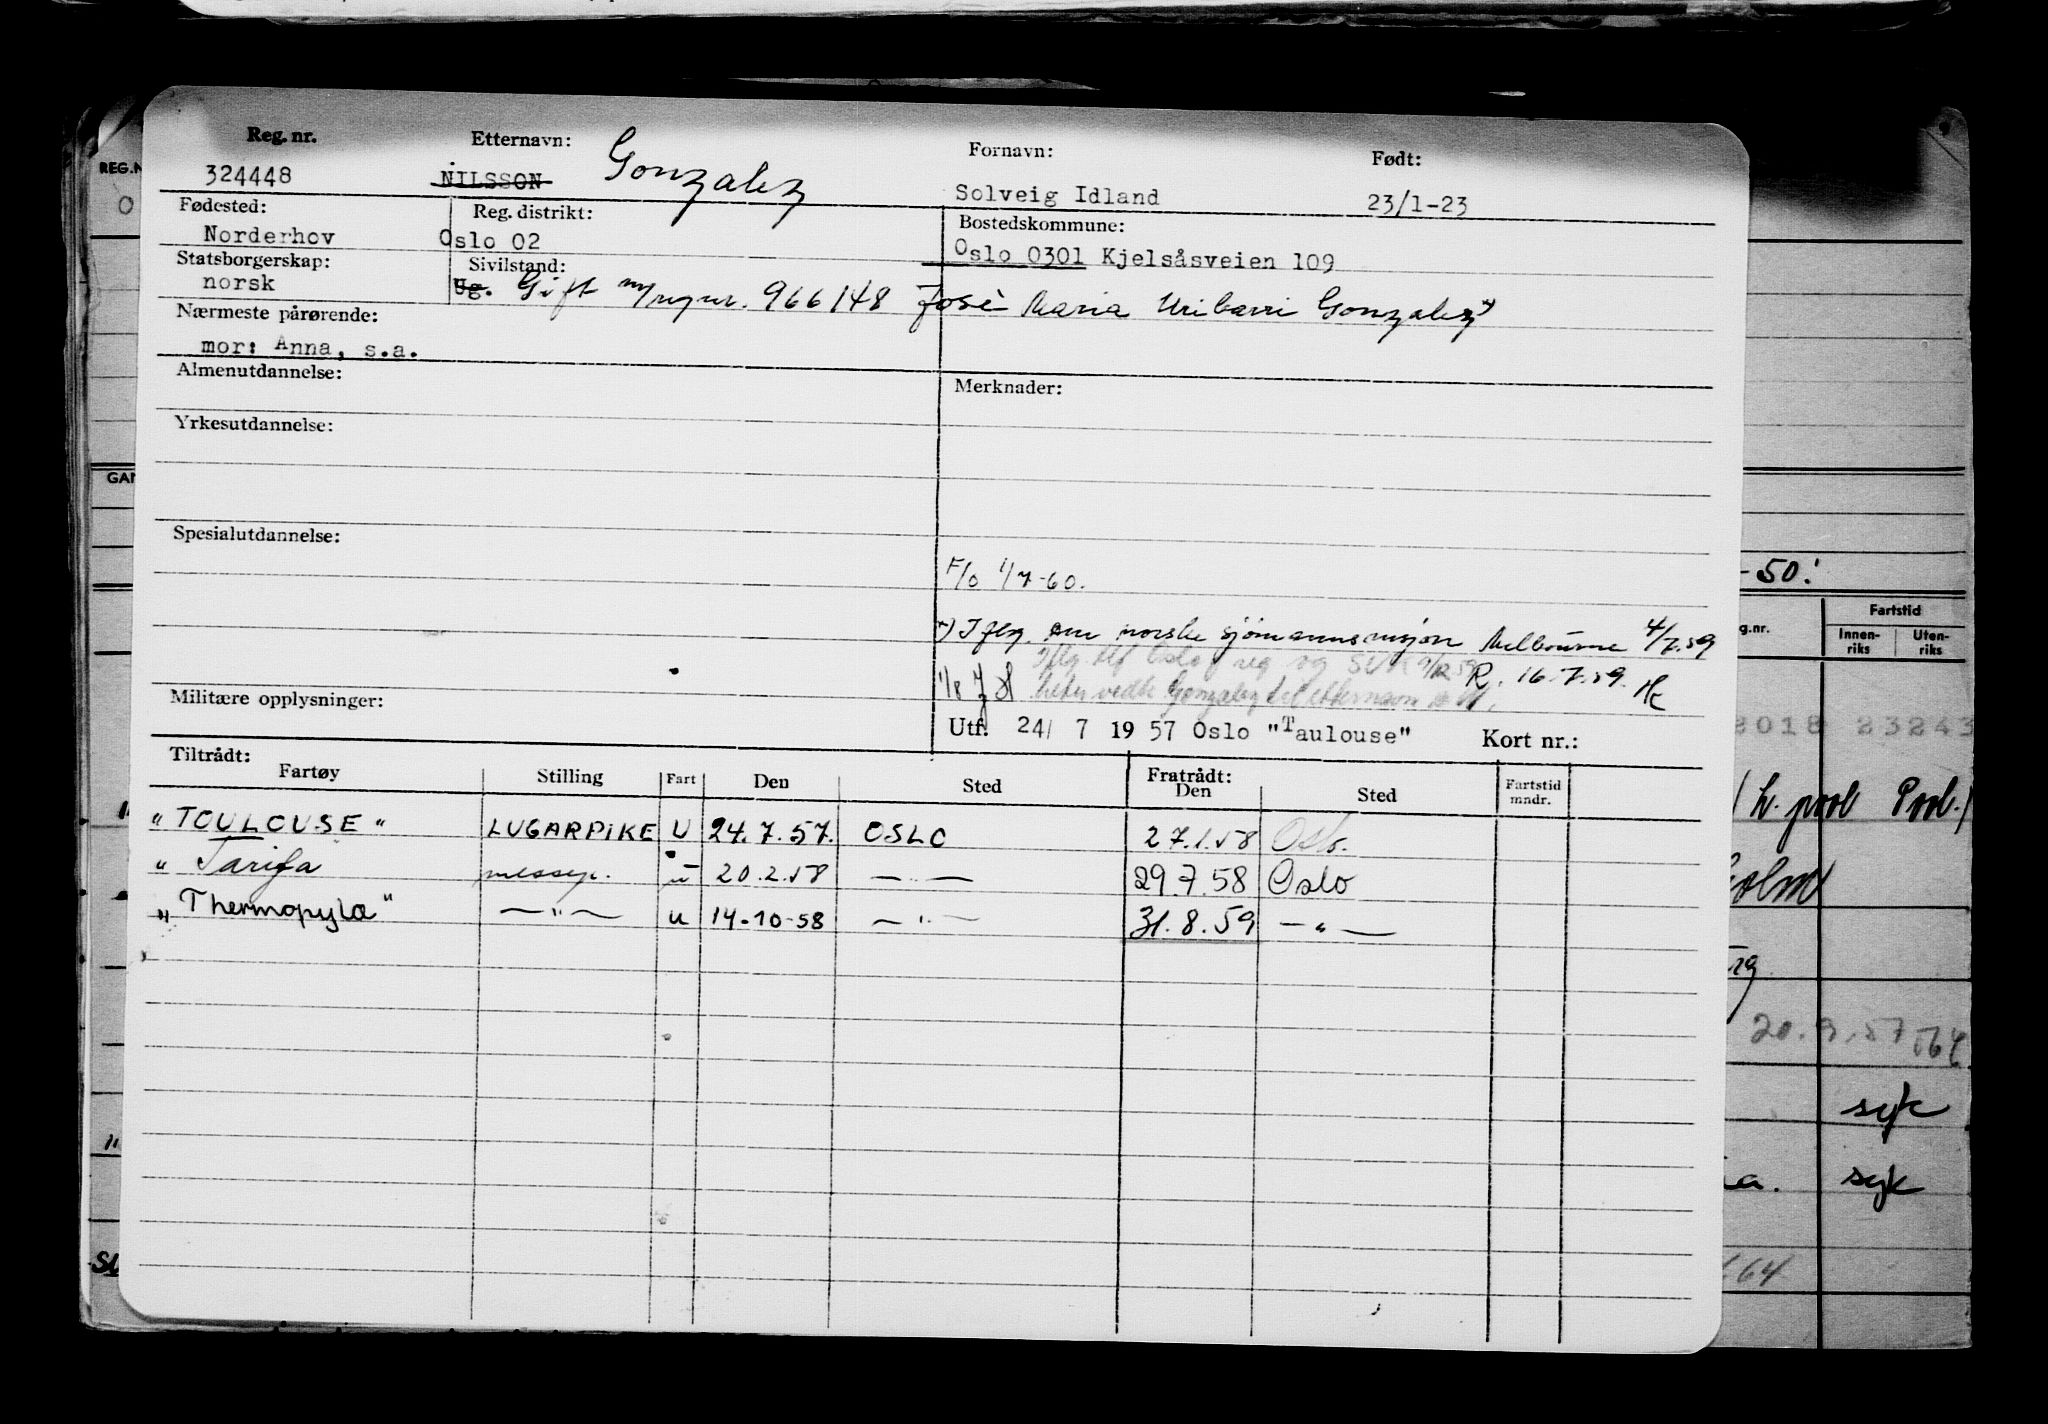 REG.N
Reg. nr. Etternavn: Gonzalez Fornavn: Født:
324448 NILSSON Solveig Idland 23/1-23
Fødested: Reg. distrikt: Bostedskommune:
Norderhov Oslo 02 Oslo 0301 Kjelsåsveien 109
Statsborgerskap: Sivilstand:
norsk Ug. Gift m/regnr. 966148 José Maria Uribarri Gonzalez *)
Nærmeste pårørende:
mor: Anna, s.a.
Almenutdannelse: Merknader:
Yrkesutdannelse:
GAN
Spesialutdannelse:
F/o 1/7-60.
-50!
*) Iflg. den norske sjömannsmisjon Melbourne 4/7.59
Iflg. tlf Oslo reg og
R. 16.7.59. HC
heter vedk Gonzalez til etternavn
Militære opplysninger:
Utf. 24/ 7 19 57 Oslo "Taulouse" Kort nr.:
Tiltrådt: Fratrådt:
Fartøy Stilling Fart Den Sted Den Sted Fartstid mndr.
"TOULOUSE" LUGARPIKE U 24.7.57. OSLO 27.1.58 Oslo.
" Tarifa messep. u 20.2.58 — " — 29.7.58 Oslo
"Thermopylæ" — " — u 14-10-58 — " — 31.8.59 — " —
g.nr. Fartstid
Innen-riks Uten-riks
2018 23243
holm
20.9.57
syk
syk
64